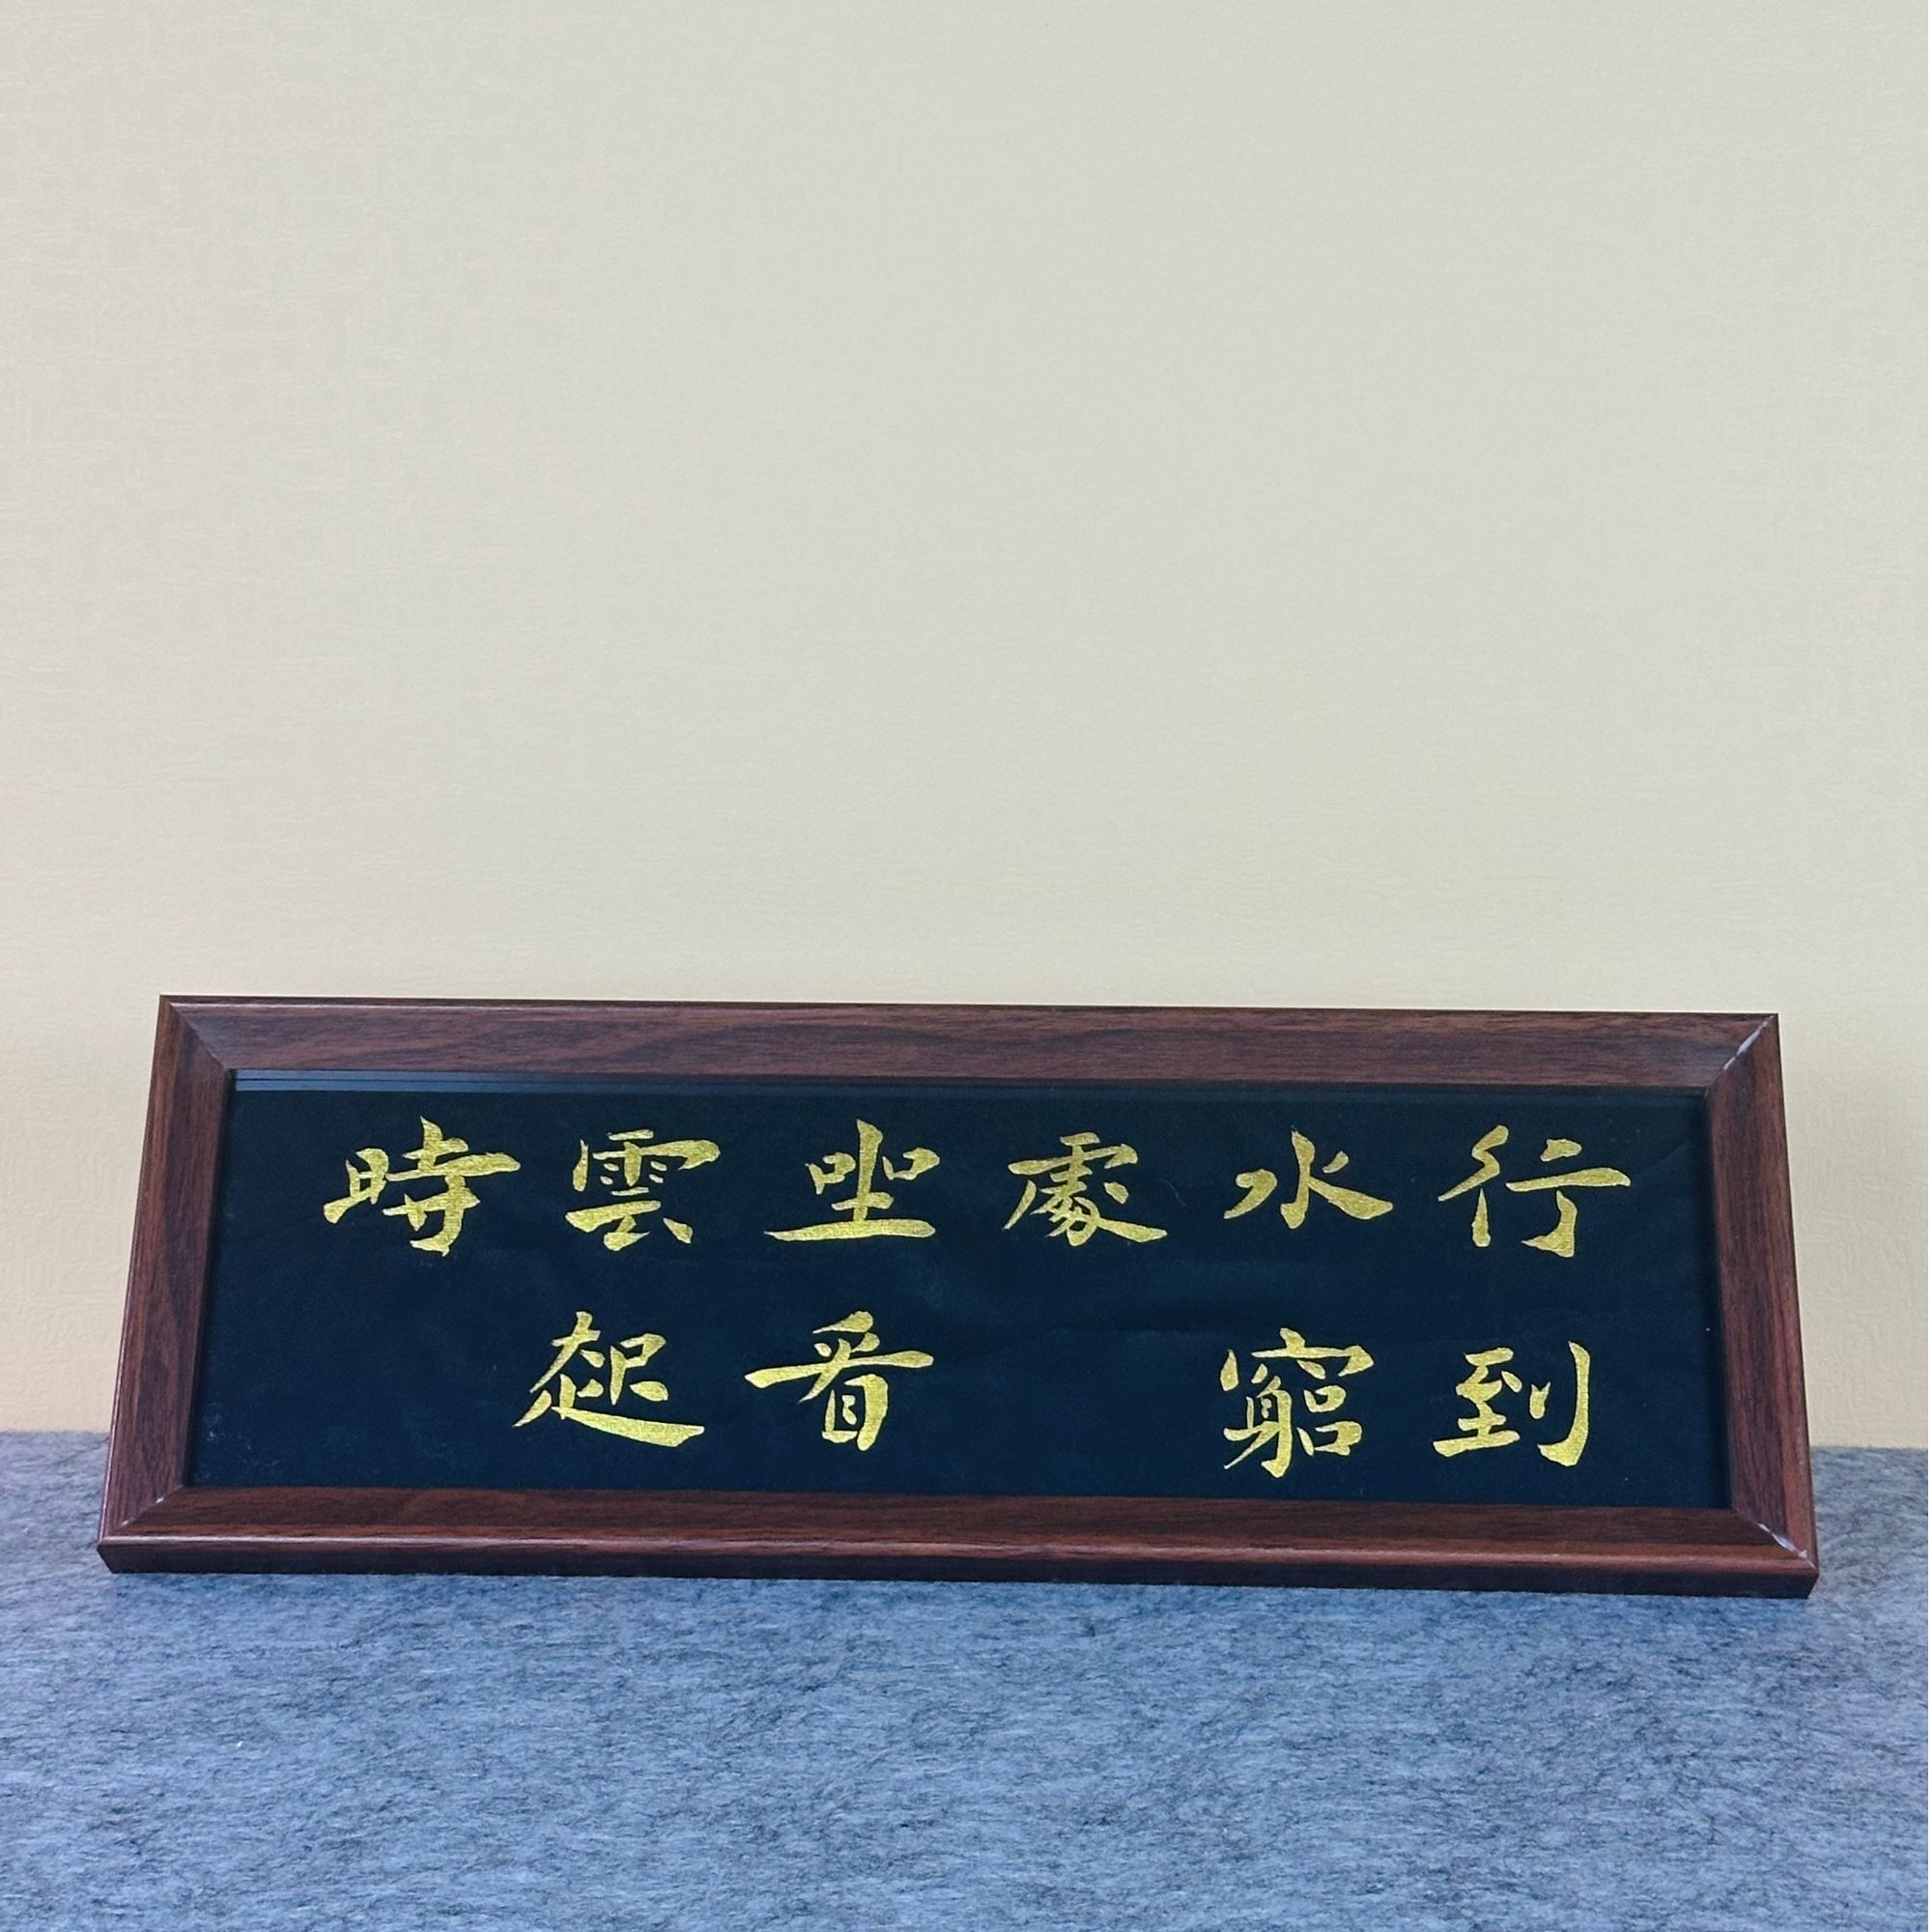 行到
水窮
處
坐看
雲起
時